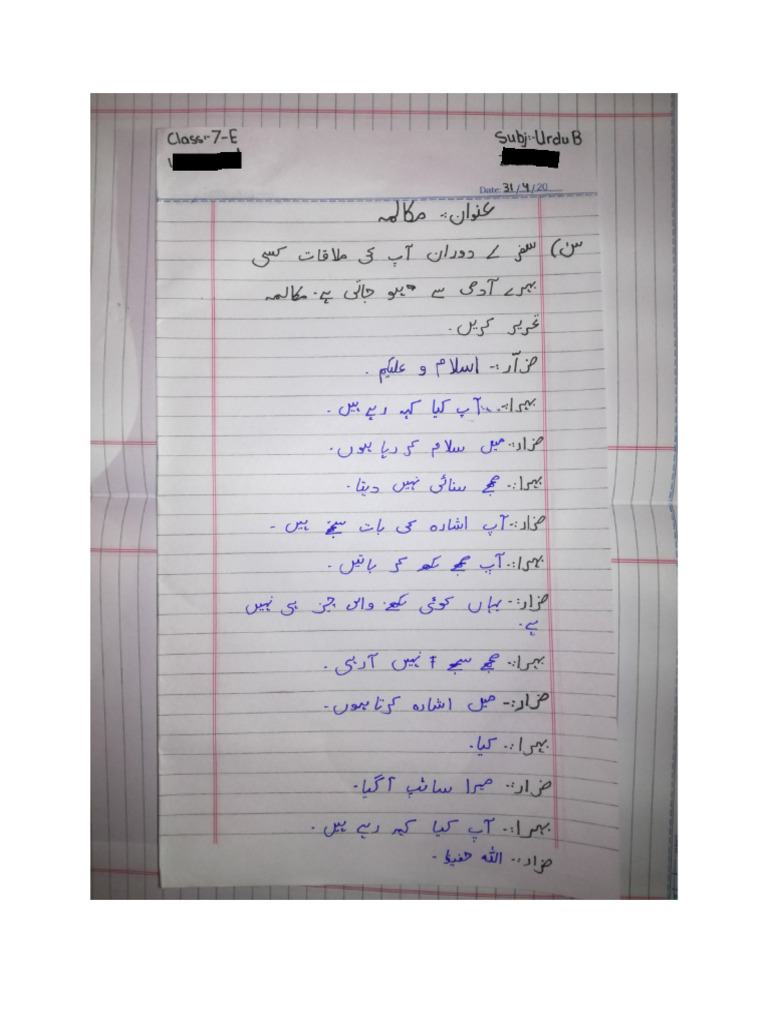 Class:-7-E
Subj:-Urdu B
Date: 31/4/20
عنوان:- مکالمہ
س) سفر کے دوران آپ کی ملاقات کسی
بہرے آدمی سے ہو جاتی ہے۔ مکالمہ
تحریر کریں۔
ضرار:- اسلام و علیکم۔
بہرا:- آپ کیا کہہ رہے ہیں۔
ضرار:- میں سلام کر رہا ہوں۔
بہرا:- مجھے سنائی نہیں دیتا۔
ضرار:- آپ اشارہ کی بات سمجھتے ہیں۔
بہرا:- آپ مجھے لکھ کر بتائیں۔
ضرار:- یہاں کوئی لکھنے والی چیز ہی نہیں
ہے۔
بہرا:- مجھے سمجھ نہیں آرہی۔
ضرار:- میں اشارہ کرتا ہوں۔
بہرا:- کیا۔
ضرار:- میرا سٹاپ آگیا۔
بہرا:- آپ کیا کہہ رہے ہیں۔
ضرار:- اللہ حفیظ۔